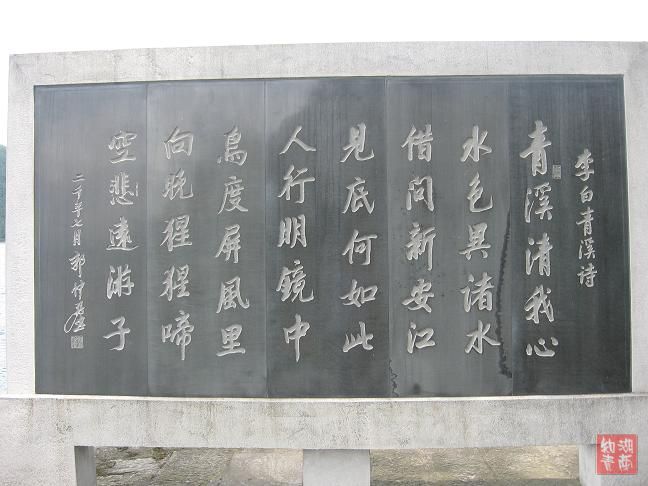 李白青溪诗
青溪清我心
水色異诸水
借问新安江
見底何如此
人行明鏡中
鳥度屏風里
向晚猩猩啼
空悲遠游子
二千年七月